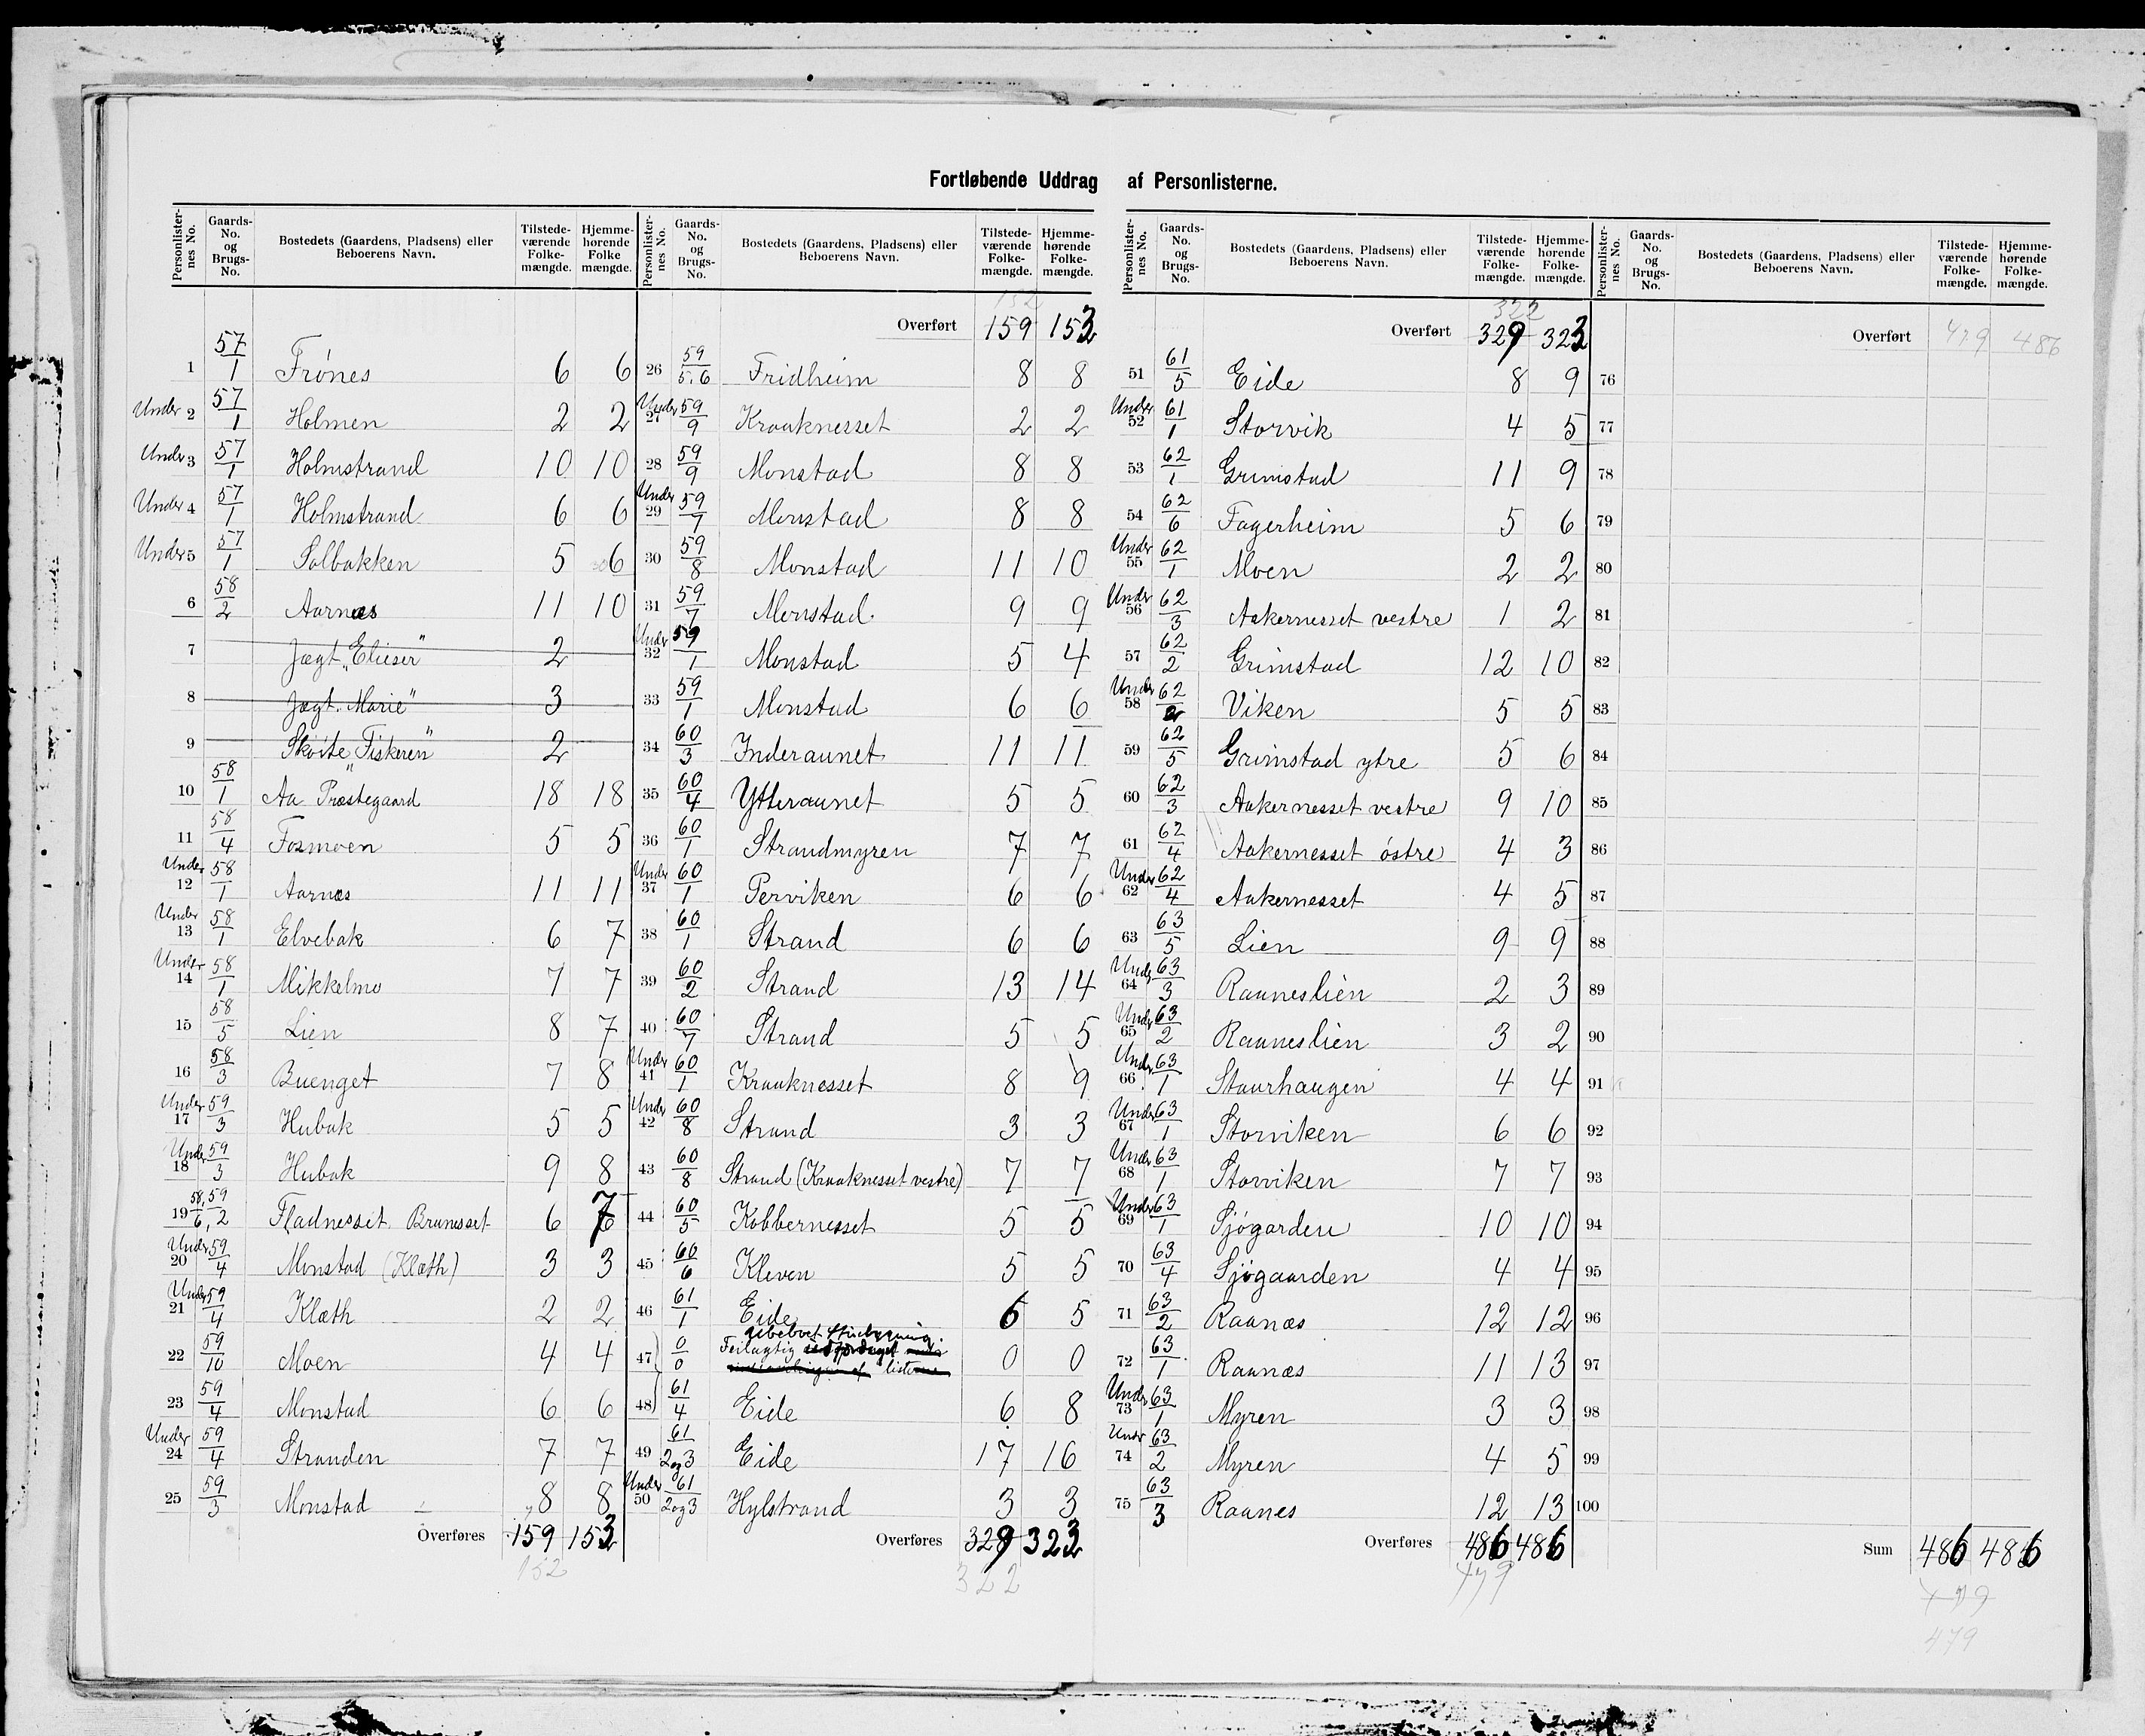 Fortløbende Uddrag af Personlisterne.
Personlisternes No. Gaards-No. og Brugs-No. Bostedets (Gaardens, Pladsens) eller Beboerens Navn. Tilstedeværende Folkemængde. Hjemmehørende Folkemængde.
1 57/1 Frónes 6 6
Under 2 57/1 Holmen 2 2
Under 3 57/1 Holmstrand 10 10
Under 4 57/1 Holmstrand 6 6
Under 5 57/1 Solbakken 5 6
6 58/2 Aarnæs 11 10
7 Jægt „Elieser" 2
8 Jægt „Marie" 3
9 Skóite „Fiskeren" 2
10 58/1 Aa Præstegaard 18 18
11 58/4 Fosmoen 5 5
Under 12 58/1 Aarnæs 11 11
Under 13 58/1 Elvebak 6 7
Under 14 58/1 Mikkelmo 7 7
15 58/5 Lien 8 7
16 58/3 Buenget 7 8
Under 17 59/3 Hubak 5 5
Under 18 59/3 Hubak 9 8
19 58,59/6,2 Fladnesset Brunesset 6 7
Under 20 59/4 Monstad (Klæth) 3 3
Under 21 59/4 Klæth 2 2
22 59/10 Moen 4 4
23 59/4 Monstad 6 6
Under 24 59/4 Stranden 7 7
25 59/3 Monstad 8 8
Overføres 159 153
152
Personlisternes No. Gaards-No. og Brugs-No. Bostedets (Gaardens, Pladsens) eller Beboerens Navn. Tilstedeværende Folkemængde. Hjemmehørende Folkemængde.
152
Overført 159 153
26 59/5.6 Fridheim 8 8
Under 27 59/9 Kraaknesset 2 2
28 59/9 Monstad 8 8
Under 29 59/7 Monstad 8 8
30 59/8 Monstad 11 10
31 59/7 Monstad 9 9
Under 32 59/1 Monstad 5 4
33 59/1 Monstad 6 6
34 60/3 Inderaunet 11 11
35 60/4 Ytteraunet 5 5
36 60/1 Strandmyren 7 7
Under 37 60/1 Perviken 6 6
38 60/1 Strand 6 6
39 60/2 Strand 13 14
40 60/7 Strand 5 5
Under 41 60/1 Kraaknesset 8 9
Under 42 60/8 Strand 3 3
43 60/8 Strand (Kraaknesset vestre) 7 7
44 60/5 Kobbernesset 5 5
45 60/6 Kleven 5 5
46 61/1 Eide 6 5
47 0/0 Feilagtig 0 0
48 61/4 Eide 6 8
49 61/2og3 Eide 17 16
Under 50 61/2og3 Hylstrand 3 3
Overføres 329 323
322
Personlisternes No. Gaards-No. og Brugs-No. Bostedets (Gaardens, Pladsens) eller Beboerens Navn. Tilstedeværende Folkemængde. Hjemmehørende Folkemængde.
322
Overført 329 323
51 61/5 Eide 8 9
Under 52 61/1 Storvik 4 5
53 62/1 Grimstad 11 9
54 62/6 Fagerheim 5 6
Under 55 62/1 Moen 2 2
Under 56 62/3 Aakernesset vestre 1 2
57 62/2 Grimstad 12 10
Under 58 62/2 Viken 5 5
59 62/5 Grimstad ytre 5 6
60 62/3 Aakernesset vestre 9 10
61 62/4 Aakernesset óstre 4 3
Under 62 62/4 Aakernesset 4 5
63 63/5 Lien 9 9
Under 64 63/3 Raaneslien 2 3
Under 65 63/2 Raaneslien 3 2
Under 66 63/1 Staurhaugen 4 4
Under 67 63/1 Storviken 6 6
Under 68 63/1 Storviken 7 7
Under 69 63/1 Sjógarden 10 10
70 63/4 Sjógaarden 4 4
71 63/2 Raanæs 12 12
72 63/1 Raanæs 11 13
Under 73 63/1 Myren 3 3
Under 74 63/2 Myren 4 5
75 63/3 Raanes 12 13
Overføres 486 486
479
Personlisternes No. Gaards-No. og Brugs-No. Bostedets (Gaardens, Pladsens) eller Beboerens Navn. Tilstedeværende Folkemængde. Hjemmehørende Folkemængde.
Overført 479 486
76
77
78
79
80
81
82
83
84
85
86
87
88
89
90
91
92
93
94
95
96
97
98
99
100
Sum 486 486
479
479